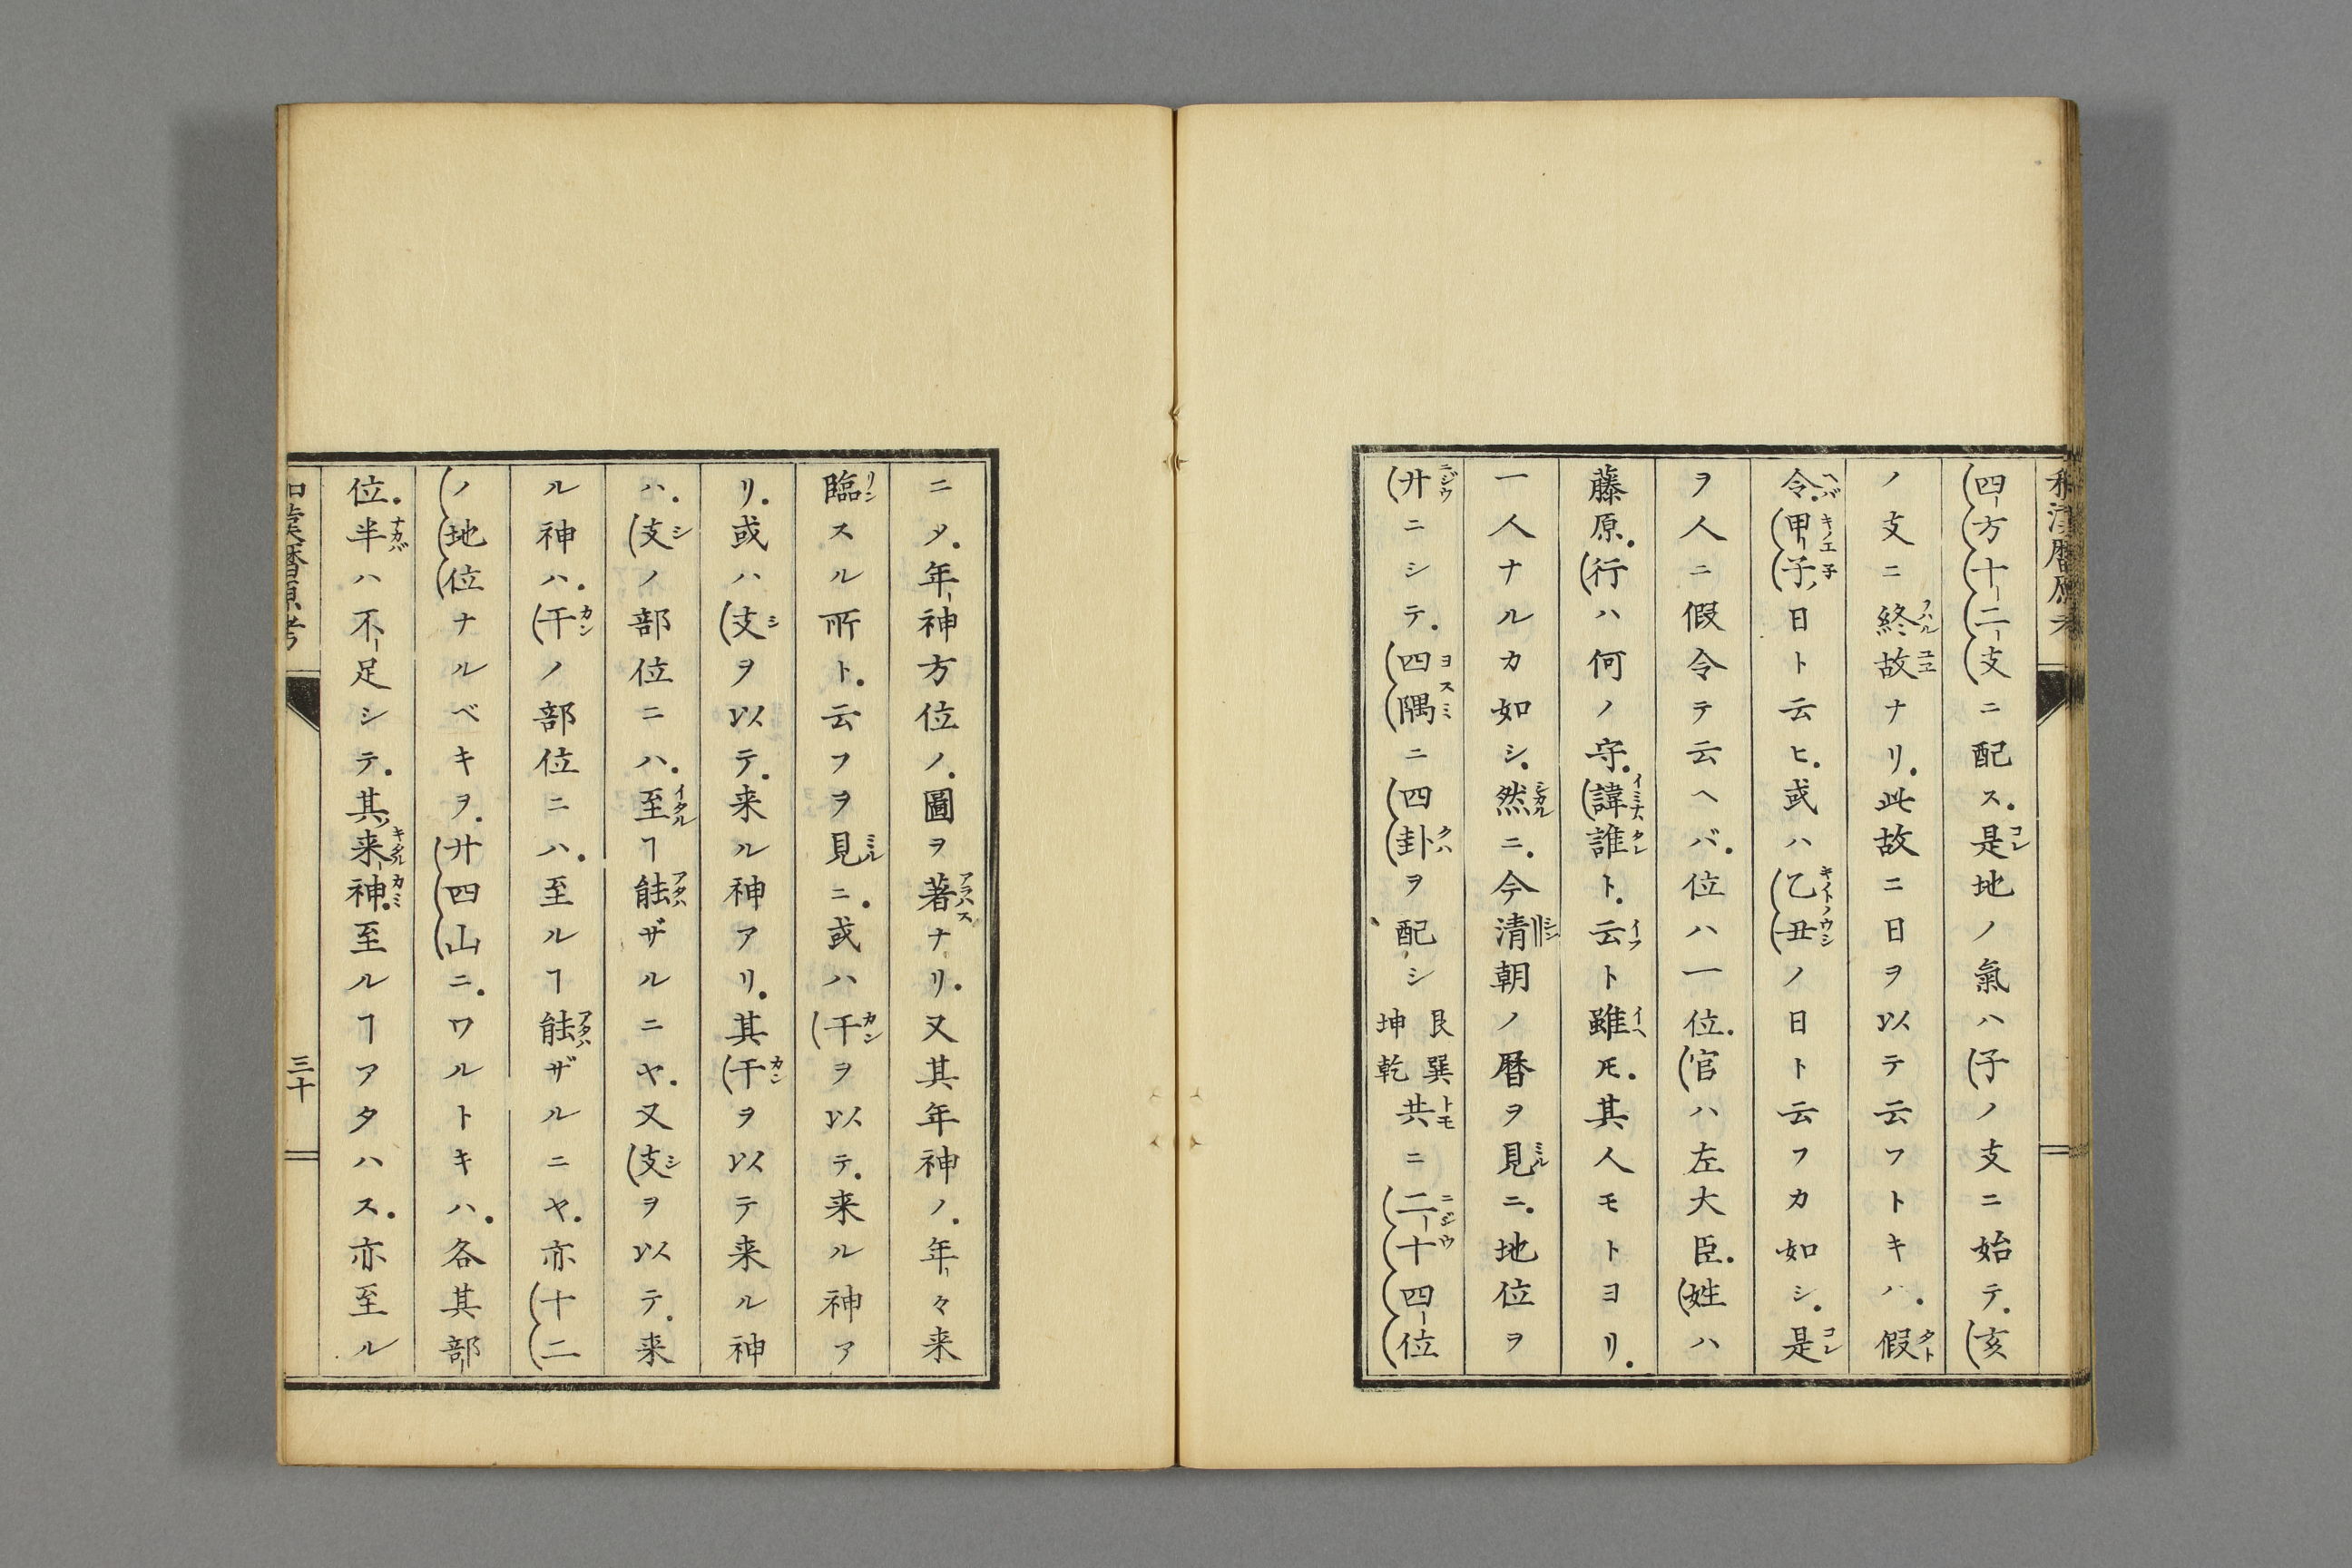 四方十二支ニ配ス。是地ノ氣ハ子ノ支ニ始テ。亥
ノ支ニ終故ナリ。此故ニ日ヲ以テ云フトキハ。假
令。甲子日ト云ヒ。或ハ乙丑ノ日ト云フカ如シ。是
ヲ人ニ假令テ云ヘバ。位ハ一位。官ハ左大臣。姓ハ
藤原。行ハ何ノ守。諱誰ト。云ト雖𪜈。其人モトヨリ。
一人ナルカ如シ。然ニ。今清朝ノ曆ヲ見ニ。地位ヲ
廿ニシテ。四隅ニ四卦ヲ配シ艮巽坤乾共ニ二十四位
ニタ。年神方位ノ。圖ヲ著ナリ。又其年神ノ。年々来
臨スル所ト。云フヲ見ニ。或ハ干ヲ以テ。来ル神ア
リ。或ハ支ヲ以テ。来ル神アリ。其干ヲ以テ来ル神
ハ。支ノ部位ニハ。至ヿ能ザルニヤ。又支ヲ以テ。来
ル神ハ。干ノ部位ニハ。至ルヿ能ザルニヤ。亦十二
ノ地位ナルベキヲ。廿四山ニ。ワルトキハ。各其部
位。半ハ不足シテ。其来神。至ルヿアタハス。亦至ル
和漢暦原考
三十